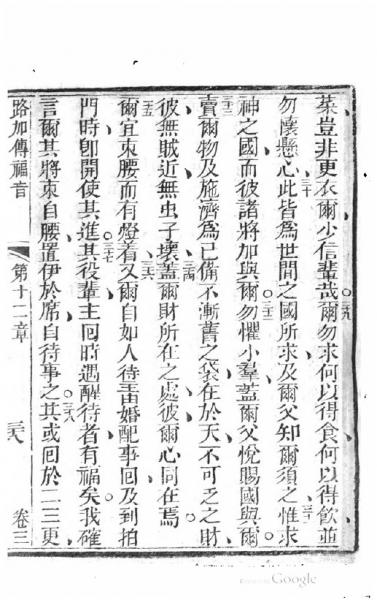 菜豈非更衣爾少信輩哉○二九爾勿求何以得食何以得飲並
勿懷懸心三十此皆爲世間之國所求及爾父知爾須之三一惟求
神之國而彼諸將加與爾○三二勿懼小羣蓋爾父悅賜國與爾○
三三賣爾物及施濟爲己備不漸舊之袋在於天不可乏之財
彼無賊近無虫子壞三四蓋爾財所在之處彼爾心同在焉
三五爾宜束腰而有燈着三六又爾自如人待主由婚配事回及到拍
門時卽開使其進○三七其役輩主回時遇醒待者有福矣我確
言爾其將束自腰置伊於席自待事之○三八其或回於二三更
路加傳福音 第十二章 二六 卷三
Google